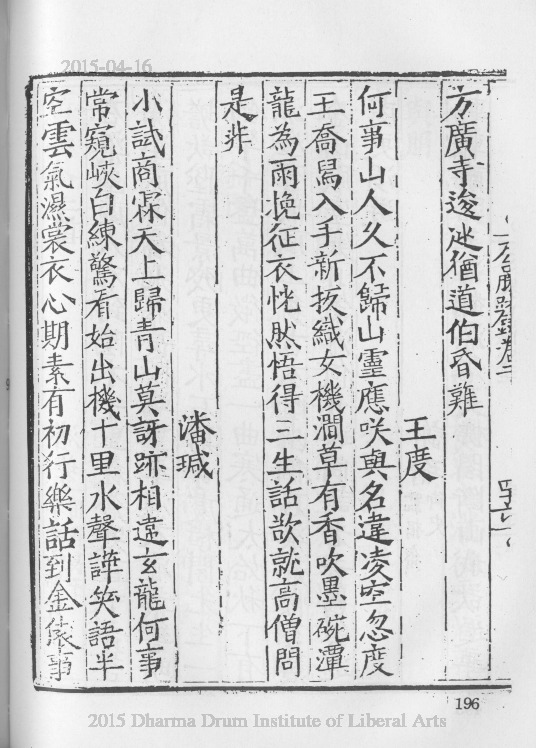 2015-04-16
方廣寺逡
猶道伯昏難
王度
何事山人久不歸山靈應咲與名違凌空忽度
王喬舄入手新抜織女機澗草有香吹墨碗潭
龍為雨挽征衣恍然悟得三生話欲就高僧問
是非
潘瑊
小試商霖天上歸青山莫訝跡相違玄龍何事
常窺峽白練驚看始出機十里水聲譁笑語半
空雲氣濕裳衣心期素有初行樂話到金
事
196
2015 Dharma Drum Institute of Liberal Arts